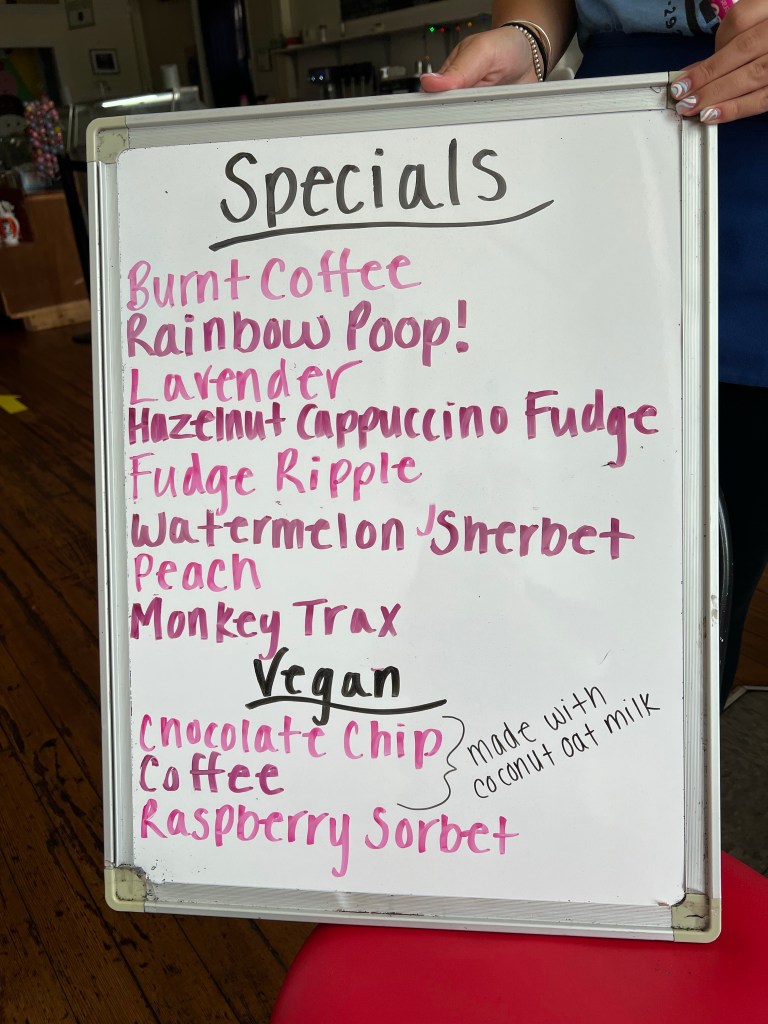 Specials
Burnt Coffee
Rainbow Poop!
Lavender
Hazelnut Cappuccino Fudge
Fudge Ripple
Watermelon Sherbet
Peach
Monkey Trax
Vegan
Chocolate Chip
Coffee
made with
coconut oat milk
Raspberry Sorbet